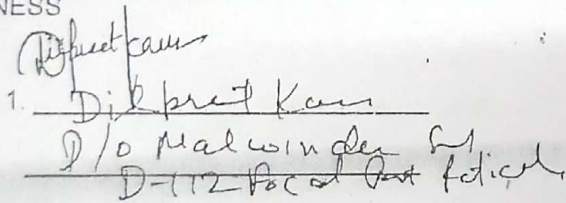 NESS
Dilpreet Kaur
1. Dilpreet Kaur
D/o Malwinder
D-112 Focal